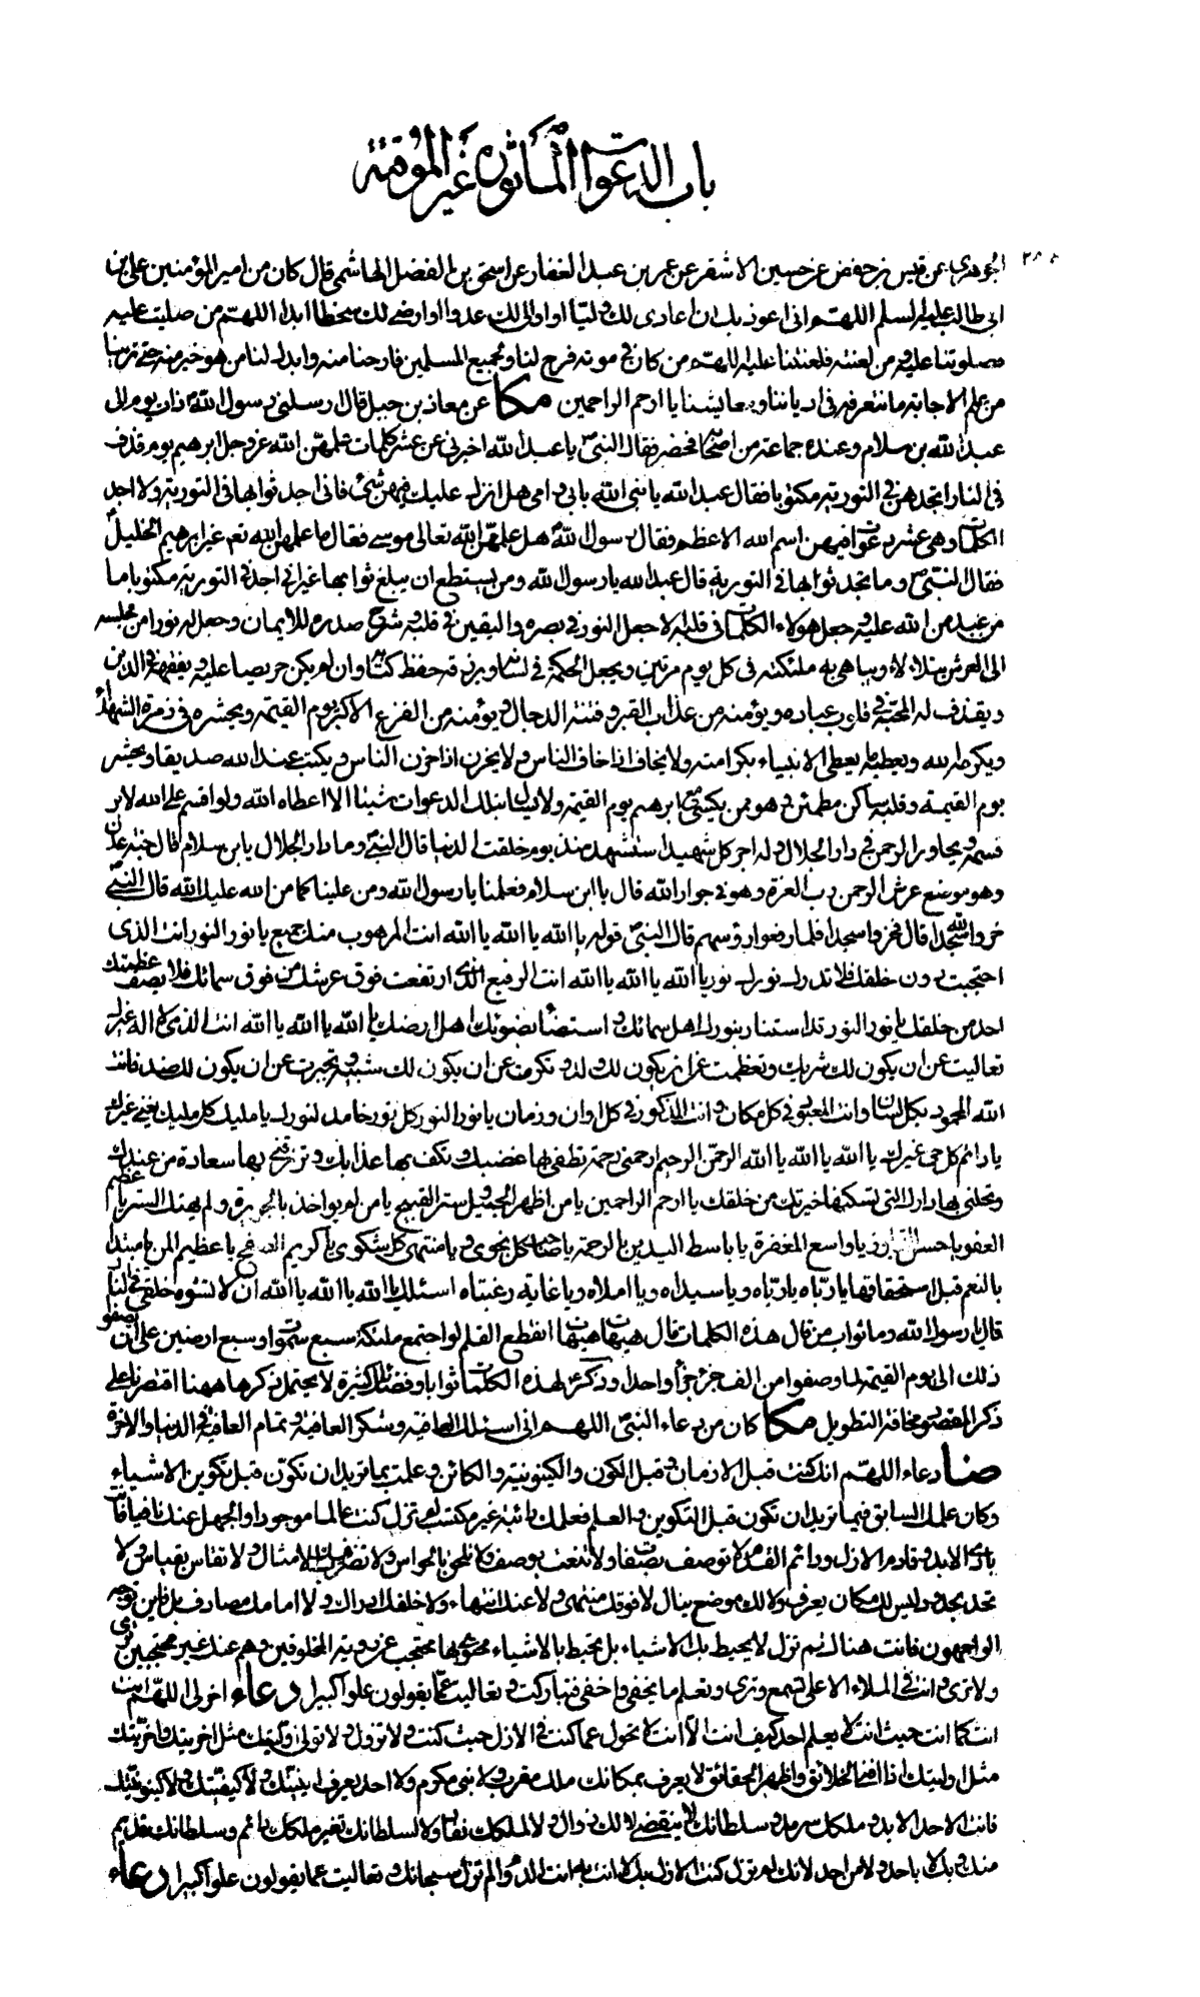 باب الدعوات المأثورة غير الموقتة
الجوهري عن قيس بن حفص عن حسين الاشقر عن عمر بن عبد الغفار عن اسحق بن الفضل الهاشمي قال كان من امير المؤمنين علي بن
ابي طالب عليه السلم اللهم اني اعوذ بك ان اعادي لك وليا او اوالي لك عدوا او ارضى لك سخطا ابدا اللهم من صليت عليه
فصلوتنا عليه ومن لعنته فلعنتنا عليه اللهم من كان في موته فرج لنا ولجميع المسلمين فارحنا منه وابدل لنا من هو خير منه حتى ترينا
من علم الاجابة ما نتعرفه في ادياننا ومعايشنا يا ارحم الراحمين مكا عن معاذ بن جبل قال ارسلني رسول الله ص ذات يوم الى
عبد الله بن سلام وعنده جماعة من اصحابه فحضر فقال النبي ص يا عبد الله اخبرني عن عشر كلمات علمهن الله عز وجل ابرهيم يوم قذف
في النار اتجدهن في التورية مكتوبا فقال عبد الله يا نبي الله بابي وامي هل انزل عليك فيهن شئ فاني اجد ثوابها في التورية ولا اجد
الكلمات وهي عشر دعوات فيهن اسم الله الاعظم فقال رسول الله ص هل علمهن الله تعالى موسى فقال ما علمهن الله تعالى غير ابرهيم الخليل
فقال النبي ص وما تجد ثوابها في التورية قال عبد الله يا رسول الله ومن يستطيع ان يبلغ ثوابها غير اني اجد في التورية مكتوبا ما
من عبد من الله عليه وجعل هؤلاء الكلمات في قلبه الا جعل النور في بصره واليقين في قلبه وشرح صدره للايمان وجعل له نورا من مجلسه
الى العرش يتلالا ويباهي به ملئكته في كل يوم مرتين ويجعل الحكمة في لسانه ويرزقه حفظ كتابه وان لم يكن حريصا عليه ويفقهه في الدين
ويقذف له المحبة في قلوب عباده ويؤمنه من عذاب القبر وفتنة الدجال ويؤمنه من الفزع الاكبر يوم القيمة ويحشره في زمرة الشهداء
ويكرمه الله ويعطيه ما يعطي الانبياء بكرامته ولا يخاف اذا خاف الناس ولا يحزن اذا حزن الناس ويكتب عند الله صديقا ويحشر
يوم القيمة وقلبه ساكن مطمئن وهو ممن يكسى مع ابرهيم يوم القيمة ولا يسأل بتلك الدعوات شيئا الا اعطاه الله ولو اقسم على الله لابر
قسمه ويجاور الرحمن في دار الجلال وله اجر كل شهيد استشهد منذ يوم خلقت الدنيا قال النبي ص وما دار الجلال يا بن سلام قال جنة عدن
وهو موضع عرش الرحمن رب العزة وهو في جوار الله قال يا ابن سلام فعلمنا يا رسول الله ومن علينا كما من الله عليك قال النبي ص
خروا لله سجدا قال فخروا سجدا فلما رفعوا رؤسهم قال النبي ص قولوا يا الله يا الله يا الله انت المرهوب منك جميع يا نور النور انت الذي
احتجبت دون خلقك فلا تدرك نورك نور يا الله يا الله يا الله انت الرفيع الذي ارتفعت فوق عرشك من فوق سمائك فلا يصف عظمتك
احد من خلقك يا نور النور قد استنار بنورك اهل سمائك واستضاء بضوئك اهل ارضك يا الله يا الله يا الله انت الذي لا اله غيرك
تعاليت عن ان يكون لك شريك وتعظمت عن ان يكون لك ولد وتكرمت عن ان يكون لك شبيه وتجبرت عن ان يكون لك ضد فانت
الله المحمود بكل لسان وانت المعبود في كل مكان وانت المذكور في كل اوان وزمان يا نور النور كل نور خامد لنورك يا مليك كل مليك يفنى غيرك
يا دائم كل حي غيرك يا الله يا الله يا الله الرحمن الرحيم ارحمني رحمة تطفئ بها غضبك وتكف بها عذابك وترزقني بها سعادة من عندك
وتحلني بها دارك التي تسكنها خيرتك من خلقك يا ارحم الراحمين يا من اظهر الجميل وستر القبيح يا من لم يؤاخذ بالجريرة ولم يهتك الستر يا عظيم
العفو يا حسن التجاوز يا واسع المغفرة يا باسط اليدين بالرحمة يا صاحب كل نجوى ويا منتهى كل شكوى يا كريم الصفح يا عظيم المن يا مبتدأ
بالنعم قبل استحقاقها يا رباه يا رباه ويا سيداه ويا املاه ويا غاية رغبتاه اسئلك يا الله يا الله يا الله ان لا تشوه خلقي في النار
قال يا رسول الله وما ثواب من قال هذه الكلمات قال هيهات هيهات انقطع القلم لو اجتمع ملئكة سبع سموات وسبع ارضين على ان يصفوا
ذلك الى يوم القيمة لما وصفوا من الف جزء جزأ واحدا وذكر ص لهذه الكلمات ثوابا وفضائل كثيرة لا يحتمل ذكرها ههنا اقتصرنا على
ذكر المقصود مخافة التطويل مكا كان من دعاء النبي ص اللهم اني اسئلك العافية وشكر العافية وتمام العافية في الدنيا والاخرة
ضا دعاء اللهم انك كنت قبل الازمان وقبل الكون والكينونية والكائن وعلمت بما تريد ان تكون قبل تكوين الاشياء
وكان علمك السابق فيما تريد ان تكون قبل التكوين والعلم فعلمك دائبة غير مكتسب لم تزل كنت عالما موجودا والجهل عندك نافيا فانت
بادئ الابد وقادم الازل ودائم القدم لا توصف بصفات ولا تنعت بوصف ولا تلحق بالحواس ولا تضرب فيك الامثال ولا تقاس بقياس ولا
تحد بحدود ليس لك مكان يعرف ولا لك موضع ينال لا فوقك منتهى ولا عندك انتهاء ولا خلفك ادراك ولا امامك مصادف بل اين توجه
الواجهون فانت هناك لم تزل لا يحيط بك الاشياء بل تحيط بالاشياء محتجب عن رؤية المخلوقين وهم عندك غير محتجبين ترى
ولا ترى وانت في الملاء الاعلى تسمع وترى وتعلم ما يخفى واخفى فتباركت وتعاليت عما يقولون علوا كبيرا دعاء اخر لي اللهم انت
انت كما انت حيث انت لا يعلم احد كيف انت الا انت لا تحول عما كنت في الازل حيث كنت ولا تزول ولا تولي اوليتك مثل اخريتك واخريتك
مثل اوليتك اذا افني الخلائق واظهر الحقائق لا يعرف بمكانك ملك مقرب ولا نبي مكرم ولا احد يعرف اينيتك ولا كيفيتك ولا كينونيتك
فانت الاحد الابد وملكك سرمد وسلطانك لا ينقضي لا لك زوال ولا لملكك نفاد ولا لسلطانك تغير ملكك دائم وسلطانك قديم
منك وبك لا باحد ولا من احد لانك لم تزل كنت الازل بك لا انت به انت الدوام لم تزل سبحانك وتعاليت عما يقولون علوا كبيرا دعاء